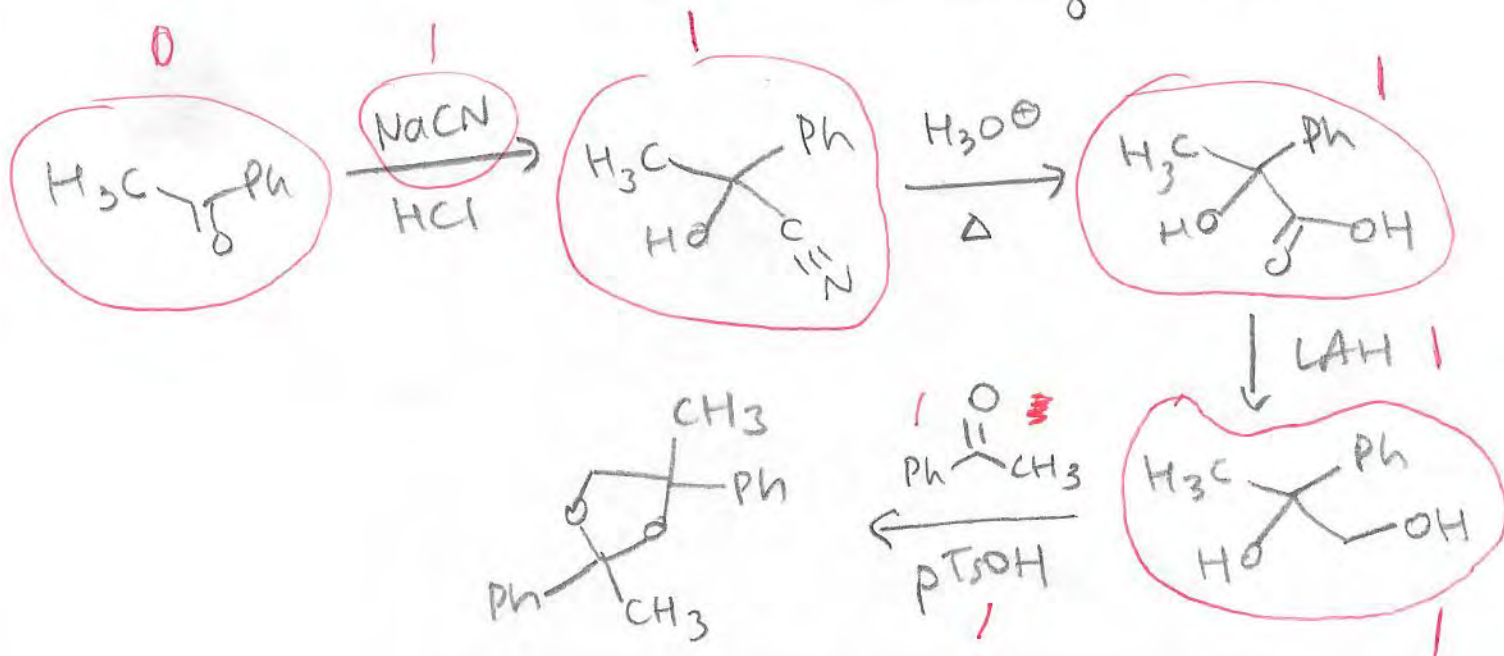 0 1 1 1
H₃C Ph O
NaCN
HCl
H₃C Ph HO C≡N
H₃O⊕
Δ
H₃C Ph HO O OH
LAH 1
H₃C Ph HO OH
1
1 O
Ph CH₃
pTsOH
1
CH₃
Ph
O O
Ph CH₃